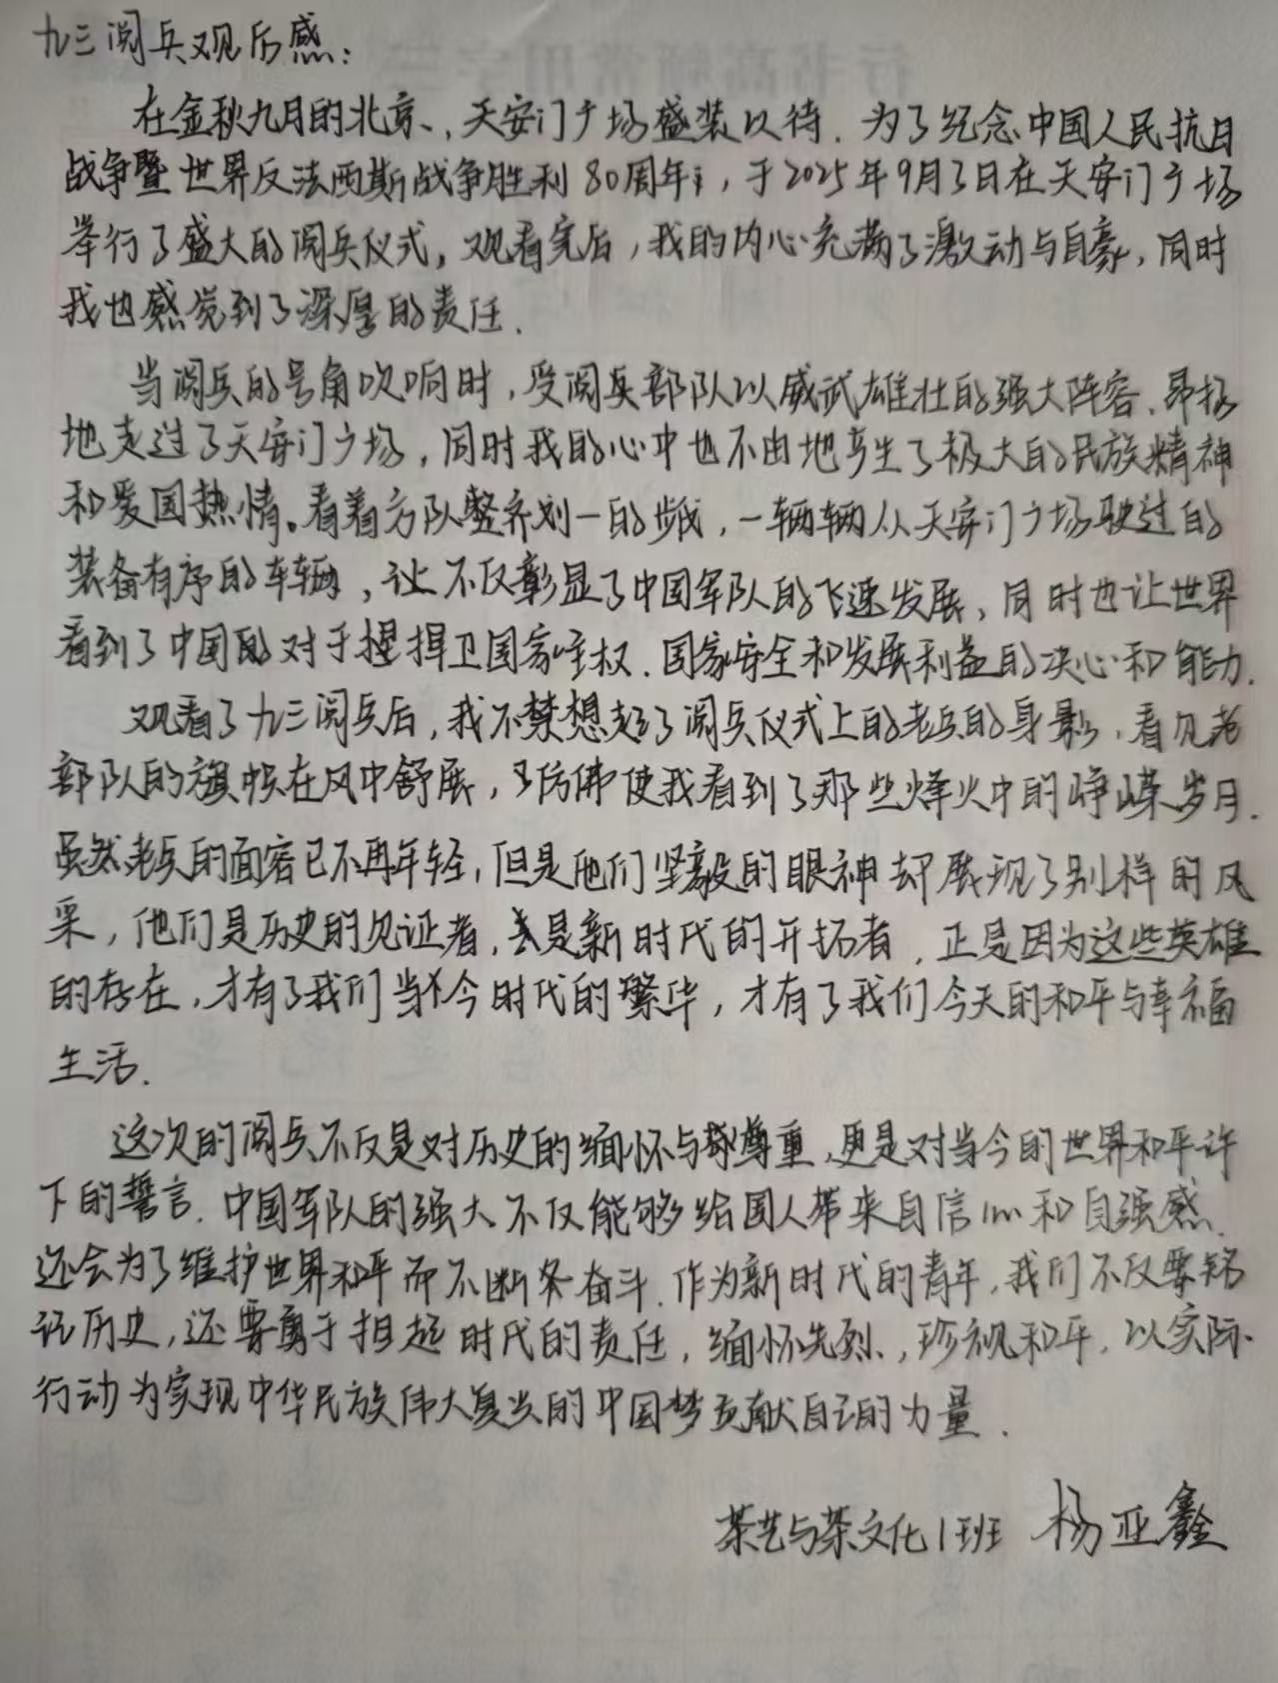 九三阅兵观后感：
在金秋九月的北京、，天安门广场盛装以待．为了纪念中国人民抗日
战争暨世界反法西斯战争胜利80周年，于2025年9月3日在天安门广场
举行了盛大的阅兵仪式。观看完后，我的内心充满了激动与自豪，同时
我也感觉到了深厚的责任．
当阅兵的号角吹响时，受阅兵部队以威武雄壮的强大阵容、昂扬
地走过了天安门广场，同时我的心中也不由地产生了极大的民族精神
和爱国热情。看着方队整齐划一的步伐，一辆辆从天安门广场驶过的
装备有序的车辆，让不仅彰显了中国军队的飞速发展，同时也让世界
看到了中国对于捍卫国家主权、国家安全和发展利益的决心和能力．
观看了九三阅兵后，我不禁想起了阅兵仪式上的老兵的身影，看见老
部队的旗帜在风中舒展，仿佛使我看到了那些烽火中的峥嵘岁月．
虽然老兵的面容已不再年轻，但是他们坚毅的眼神却展现了别样的风
采，他们是历史的见证者，是新时代的开拓者．正是因为这些英雄
的存在，才有了我们当今时代的繁华，才有了我们今天的和平与幸福
生活．
这次的阅兵不仅是对历史的缅怀与尊重，更是对当今的世界和平许
下的誓言．中国军队的强大不仅能够给国人带来自信心和自强感、
还会为了维护世界和平而不断奋斗．作为新时代的青年，我们不仅要铭
记历史，还要勇于担起时代的责任，缅怀先烈、，珍视和平，以实际
行动为实现中华民族伟大复兴的中国梦贡献自己的力量．
茶艺与茶文化1班 杨亚鑫